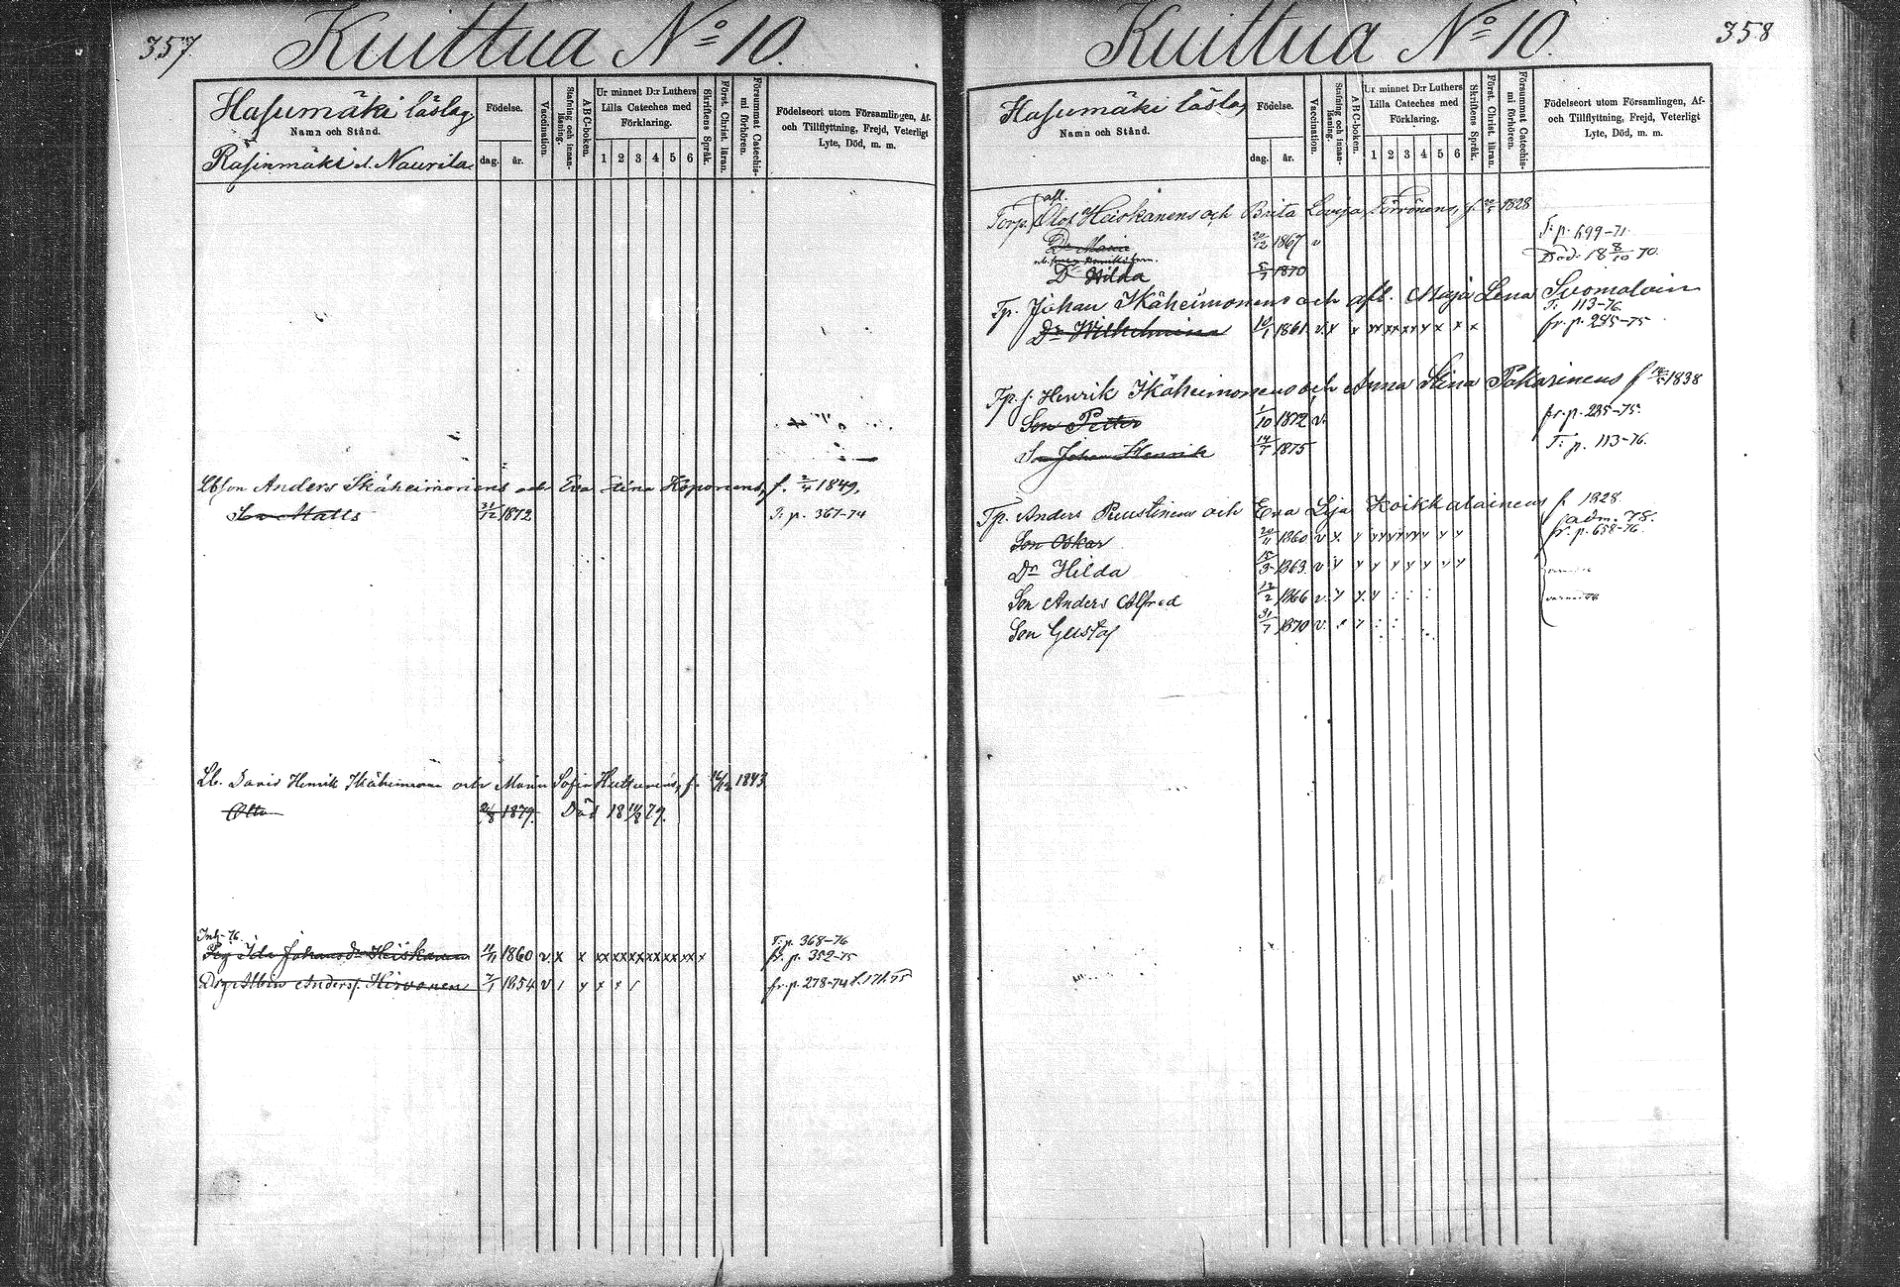 357
Kuittua No 10.
Hasumäki läslag.
Namn och Stånd.
Rasinmäki l. Naurila
Födelse.
dag. år.
Vaccination.
Stafning och innanläsning.
ABC-boken.
Ur minnet D:r Luthers Lilla Cateches med Förklaring.
1 2 3 4 5 6
Skriftens Språk.
Först. Christ. läran.
Försummat Catechismi förhören.
Födelseort utom Församlingen, Af- och Tillflyttning, Frejd, Veterligt Lyte, Död, m. m.
Lbson Anders Ikäheimonens och Eva Stina Koponens, f. 2/4 1849.
Son Matts 21/12 1872 T. p. 367-74
Lb. David Henrik Ikäheimonen och Maria Sofia Huttunens, f. 1843
Otto 1879. Död 1879.
Inh-76.
Pig. Ida Johansdr Heiskanen 11/11 1860 v. x x xx xx xx xx xx xx x T. p. 368-76
fr. p. 352-75
Drg. Albin Anders. Hirvonen 7/1 1854 v / fr. p. 278-74
358
Kuittua No 10.
Hasumäki läslag
Namn och Stånd.
Födelse.
dag. år.
Vaccination.
Stafning och innanläsning.
ABC-boken.
Ur minnet D:r Luthers Lilla Cateches med Förklaring.
1 2 3 4 5 6
Skriftens Språk.
Först. Christ. läran.
Försummat Catechismi förhören.
Födelseort utom Församlingen, Af- och Tillflyttning, Frejd, Veterligt Lyte, Död, m. m.
afl.
Torp. Olof Heiskanens och Brita Lovisa Törrönens, f. 1828
Dr Maria 20/12 1867 v T. p. 699-71.
Dr Hilda 5/7 1870 Död. 18 8/10 70.
Tp. Johan Ikäheimonens och afl. Maja Lena Suomalain
T. 113-76
Dr Wilhelmina 10/1 1861 v. x x xx xx xx x x x x fr. p. 285-75
Tp. s. Henrik Ikäheimonens och Anna Stina Pakarinens f 1838
Son Petter 1/10 1872 v. fr. p. 285-75.
Son Johan Henrik 14/7 1875 T. p. 113-76.
Tp. Anders Puustinens och Eva Lisa Koikkalainens f 1828
adm. 78.
Son Oskar 20/11 1860 v fr. p. 658-76
Dr Hilda 15/3 1863 v
Son Anders Alfred 12/2 1866 v.
Son Gustaf 31/7 1870 v.